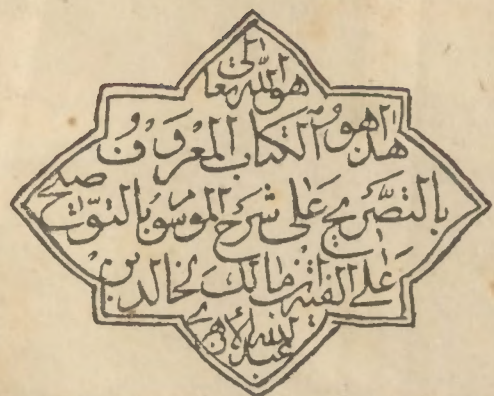 هو الله تعالى
هذا هو الكتاب المعروف
بالتصريح على شرح الموسو بالتوضيح
على الفية ابن مالك لخالد بن
عبد الله الأزهري